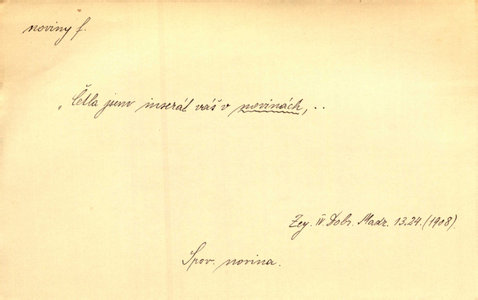 noviny f.
„Četla jsem inserát váš v novinách, ..
Zey. IV Dobr. Madr. 13.24. (1908).
Spov. novina.